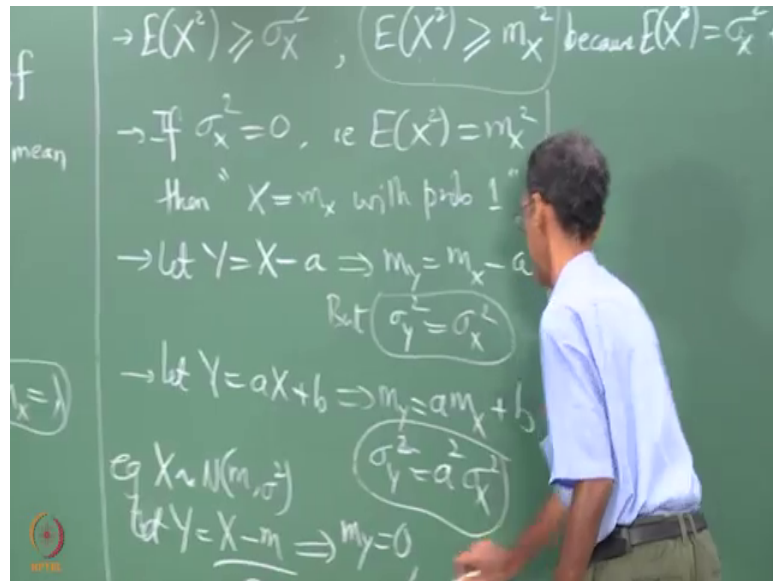 → E(X²) ⩾ σ_X² , E(X²) ⩾ m_X² because E(X²) = σ_X² +
of
→ If σ_X² = 0 , ie E(X²) = m_X²
mean
then " X = m_X with prob 1 "
→ let Y = X − a ⇒ m_Y = m_X − a
But σ_Y² = σ_X²
→ let Y = aX + b ⇒ m_Y = a m_X + b
m_X = λ
σ_Y² = a² σ_X²
eg X ~ N(m, σ²)
let Y = X − m ⇒ m_Y = 0
NPTEL